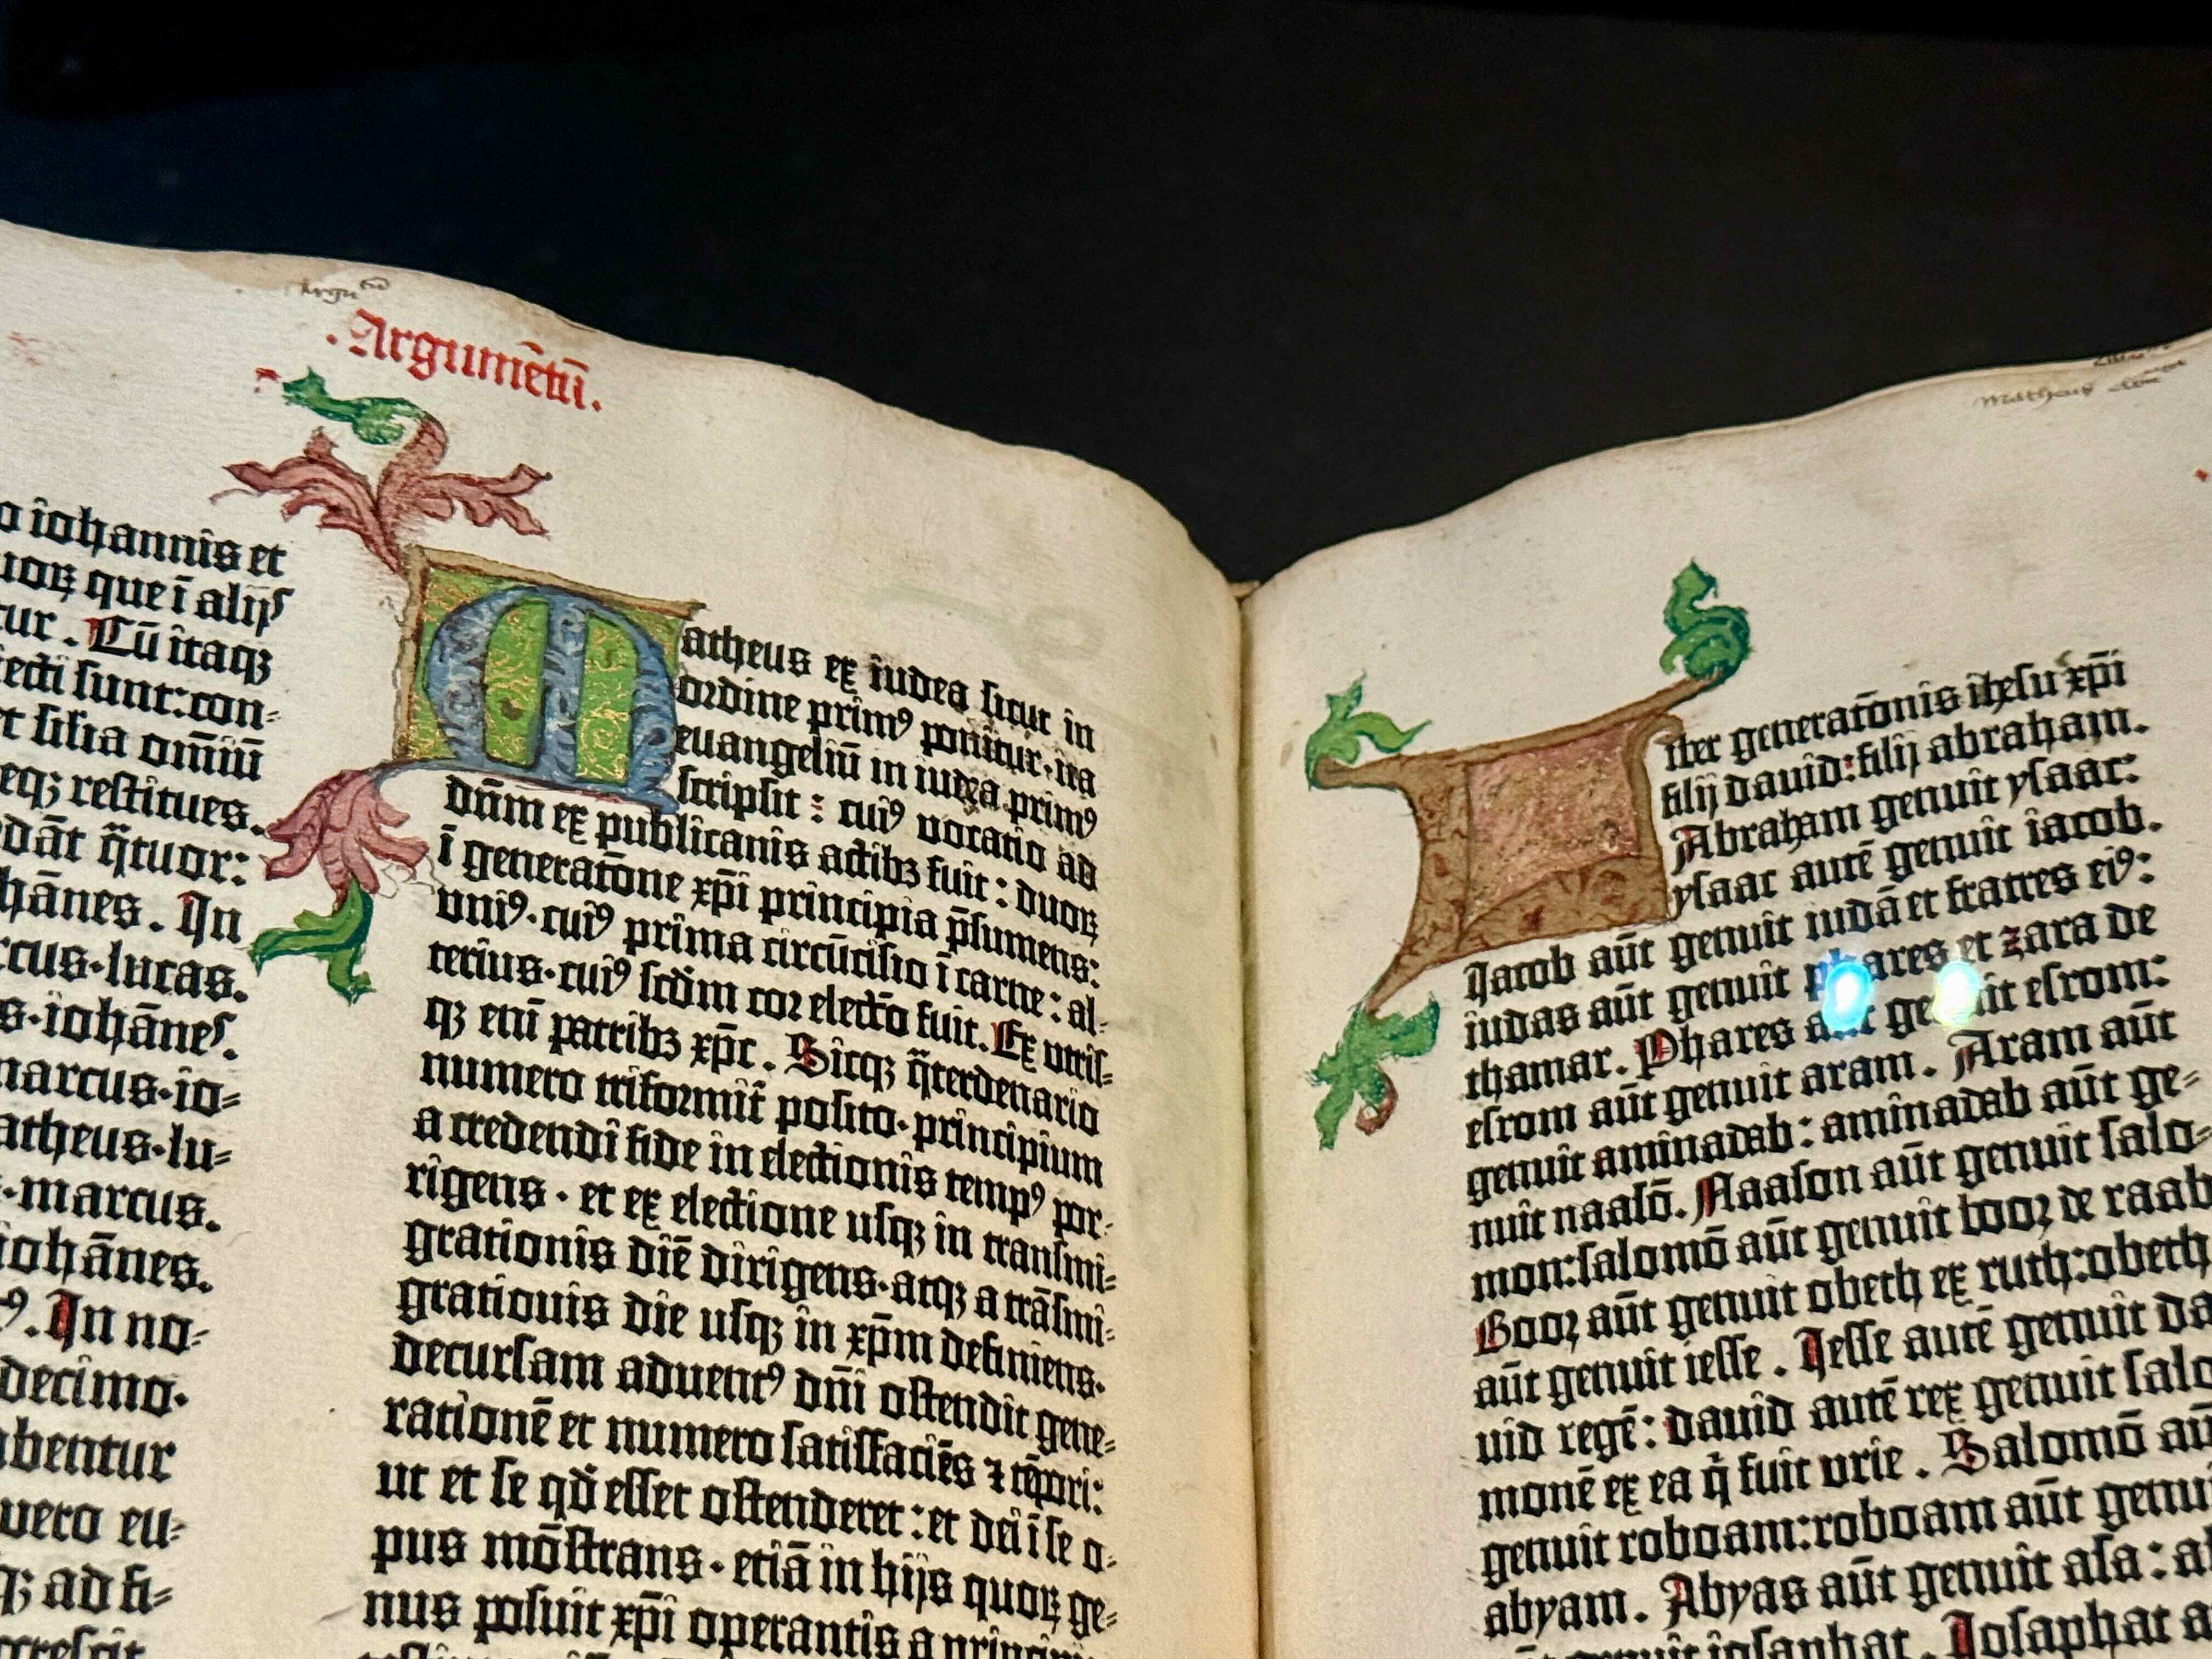 Argumētū.
o iohannis et
uoꝝ que ī alijs
tur. Cū itaqꝫ
lecti sunt: con-
et filia om̄iū
eqꝫ restitues.
dāt q̄tuor:
hānes. In
rcus·lucas.
s·iohānes.
marcus·io-
atheus·lu-
·marcus.
iohānes.
ꝰ. In no-
decimo·
bentur
vero eu-
qꝫ ad fi-
Matheus ex iudea sicut in
ordine primꝰ ponitur·ita
euangeliū in iudea primꝰ
scripsit: cuiꝰ vocatio ad
dn̄m ex publicanis actibꝫ fuit: duoꝝ
ī generatōne xp̄i principia p̄sumens:
vniꝰ·cuiꝰ prima circūcisio ī carne: al-
terius·cuiꝰ scdm cor electō fuit. Ex vtris-
qꝫ eni patribꝫ xp̄c. Sicqꝫ q̄terdenario
numero triformit̄ posito·principium
a credendi fide in electionis tempꝰ por-
rigens·et ex electione usqꝫ in transmi-
grationis diē dirigens·atqꝫ a trāsmi-
grationis die usqꝫ in xp̄m definiens·
decursam aduentꝰ dn̄i ostendit gene-
rationē et numero satisfaciēs ⁊ tēpori:
ut et se qd̄ esset ostenderet: et dei ī se o-
pus mōstrans·etiā in hijs quoꝝ ge-
nus posuit xp̄i operantis a
Matheus
Liber generatōnis ihesu xp̄i
filij dauid: filij abraham.
Abraham genuit ysaac:
ysaac autē genuit iacob.
Jacob aūt genuit iudā et fratres eiꝰ:
iudas aūt genuit phares et zara de
thamar. Phares aūt genuit esrom:
esrom aūt genuit aram. Aram aūt
genuit aminadab: aminadab aūt ge-
nuit naasō. Naason aūt genuit salo-
mon: salomō aūt genuit booz de raab
Booz aūt genuit obeth ex ruth: obeth
aūt genuit iesse. Jesse autē genuit da
uid regē: dauid autē rex genuit salo
monē ex ea q̄ fuit vrie. Salomō aū
genuit roboam: roboam aūt genui
abyam. Abyas aūt genuit asa: a
aūt genuit iosaphat. Josaphat a